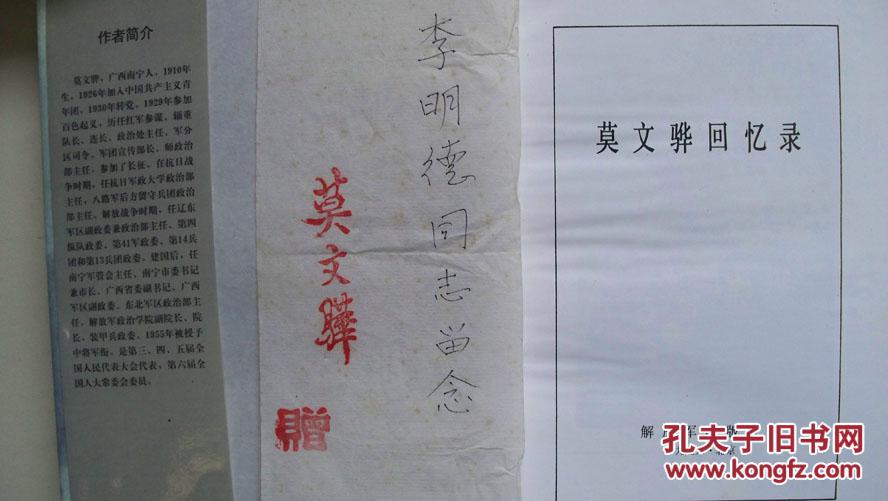 作者简介
莫文骅，广西南宁人，1910年
生，1926年加入中国共产主义青
年团，1930年转党。1929年参加
百色起义，历任红军参谋、辎重
队长、连长、政治处主任，军分
区司令，军团宣传部长、师政治
部主任，参加了长征。在抗日战
争时期，任抗日军政大学政治部
主任，八路军后方留守兵团政治
部主任。解放战争时期，任辽东
军区副政委兼政治部主任、第四
纵队政委、第41军政委、第14兵
团和第13兵团政委。建国后，任
南宁军管会主任、南宁市委书记
兼市长、广西省委副书记、广西
军区副政委、东北军区政治部主
任，解放军政治学院副院长、院
长，装甲兵政委。1955年被授予
中将军衔。是第三、四、五届全
国人民代表大会代表，第六届全
国人大常委会委员。
李明德同志留念
莫文骅
赠
莫文骅回忆录
解 军 版
孔夫子旧书网
www.kongfz.com